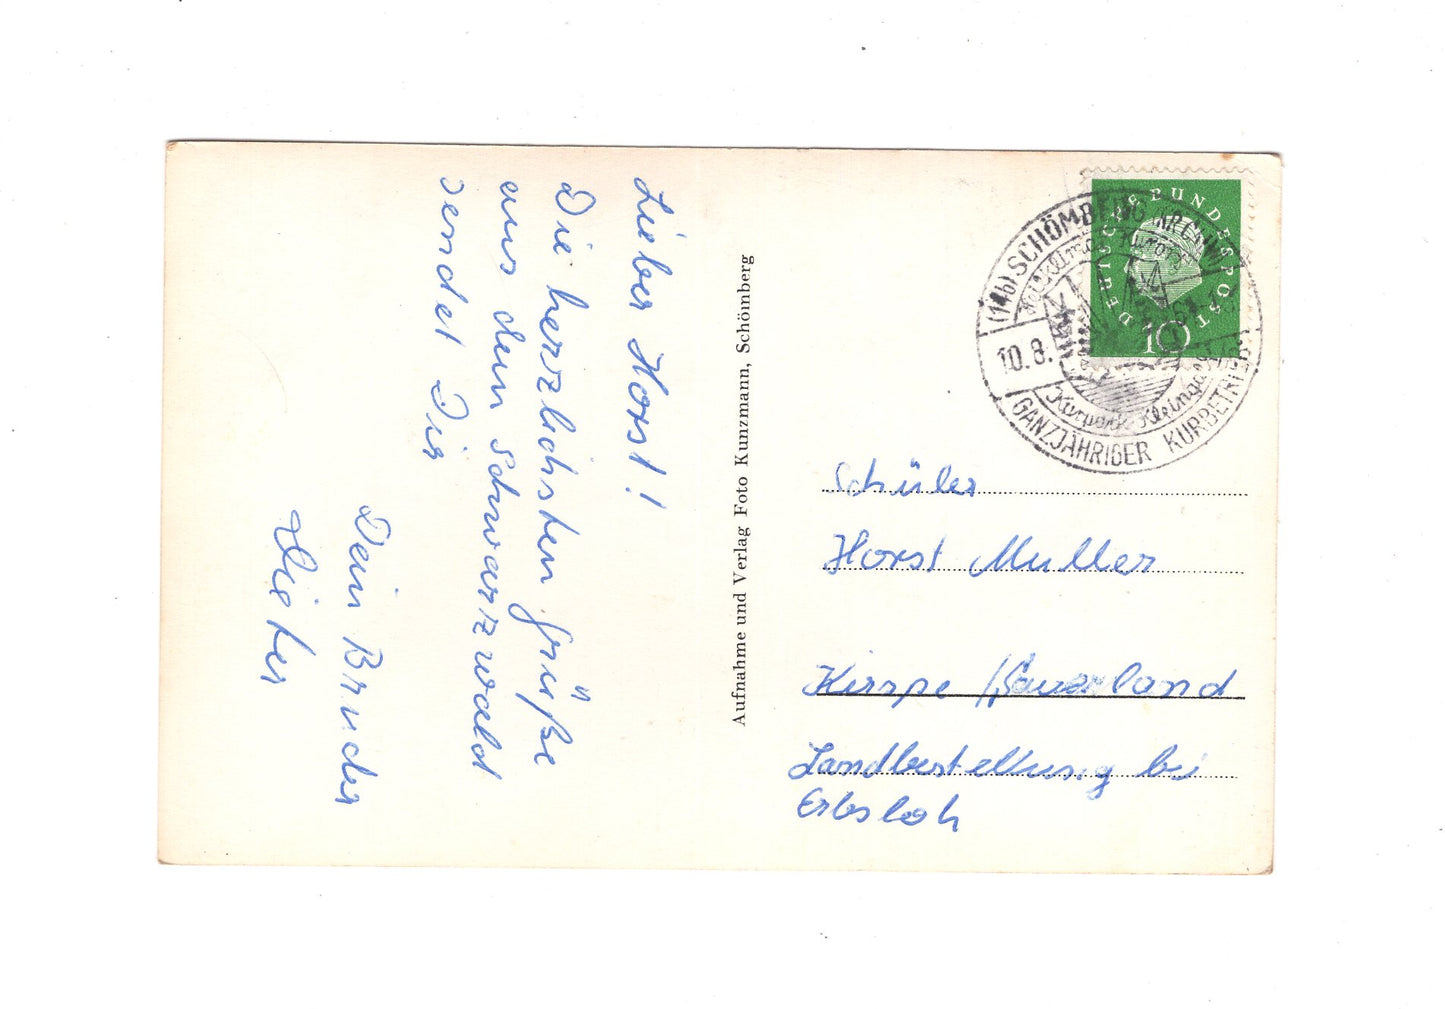 Lieber Horst!
Die herzlichsten Grüße
aus dem Schwarzwald
sendet Dir
Dein Bruder
Dieter
Aufnahme und Verlag Foto Kunzmann, Schömberg
DEUTSCHE BUNDESPOST
10
(14b) SCHÖMBERG
10.8.
Kurpark
GANZJÄHRIGER KURBETRIEB
Schüler
Horst Muller
Kierspe / Sauerland
Landbestellung bei
Erbsloh